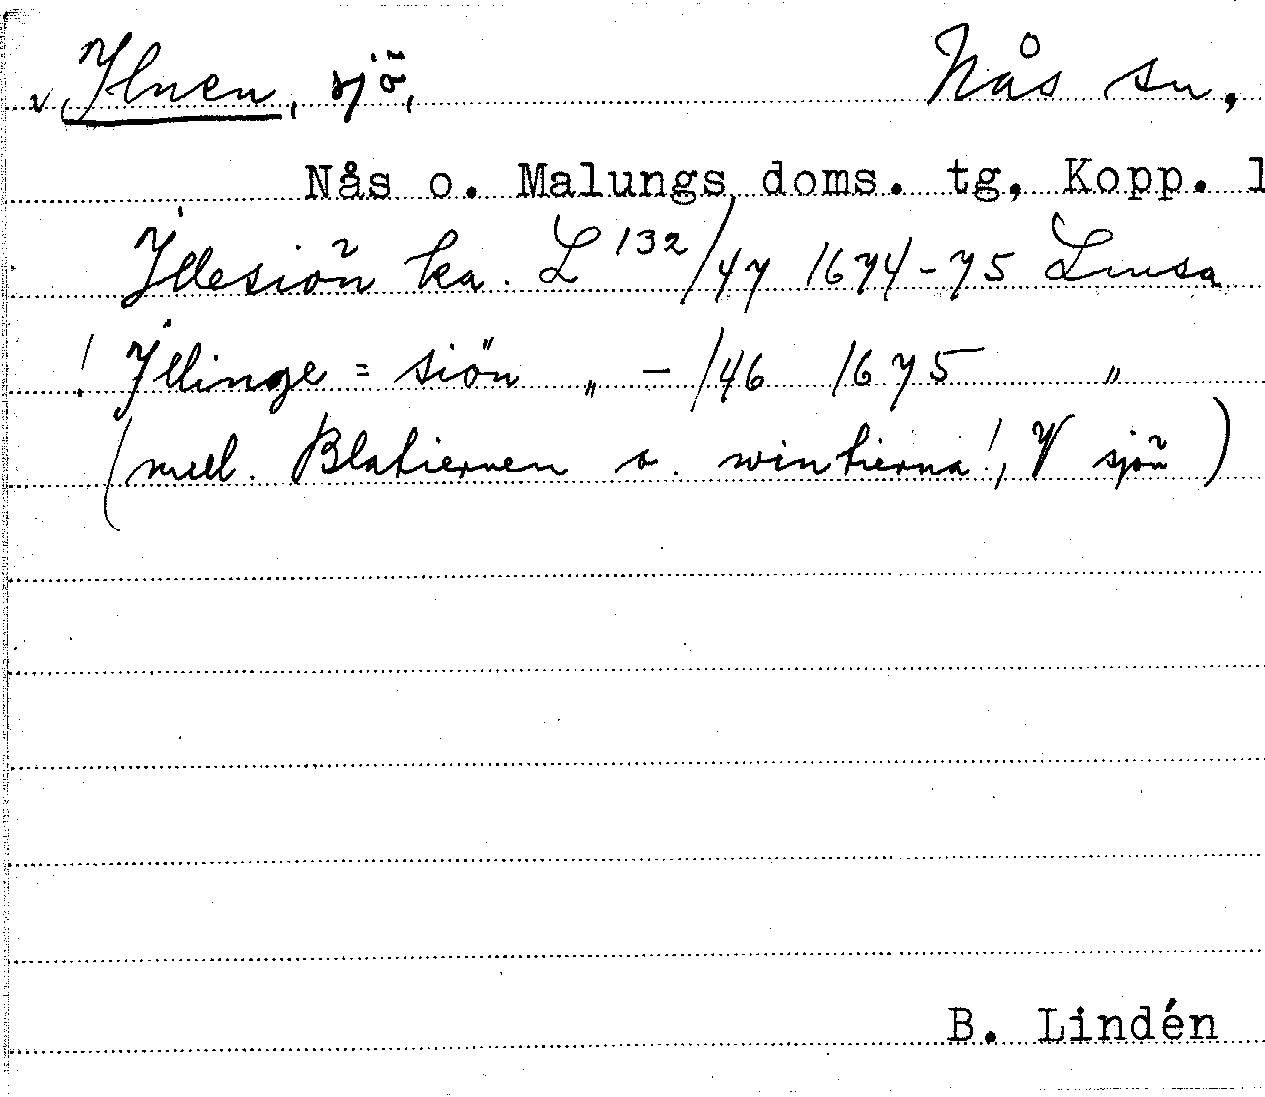 v Ylnen, sjö, Nås sn,
Nås o. Malungs doms. tg, Kopp. l
Ÿllesiön ka. L 132/47 1674-75 Lmsa
! Ÿllinge = siön „ - /46 1675 "
(mell. Blatiernen o. wintierna!, V sjön)
B. Lindén